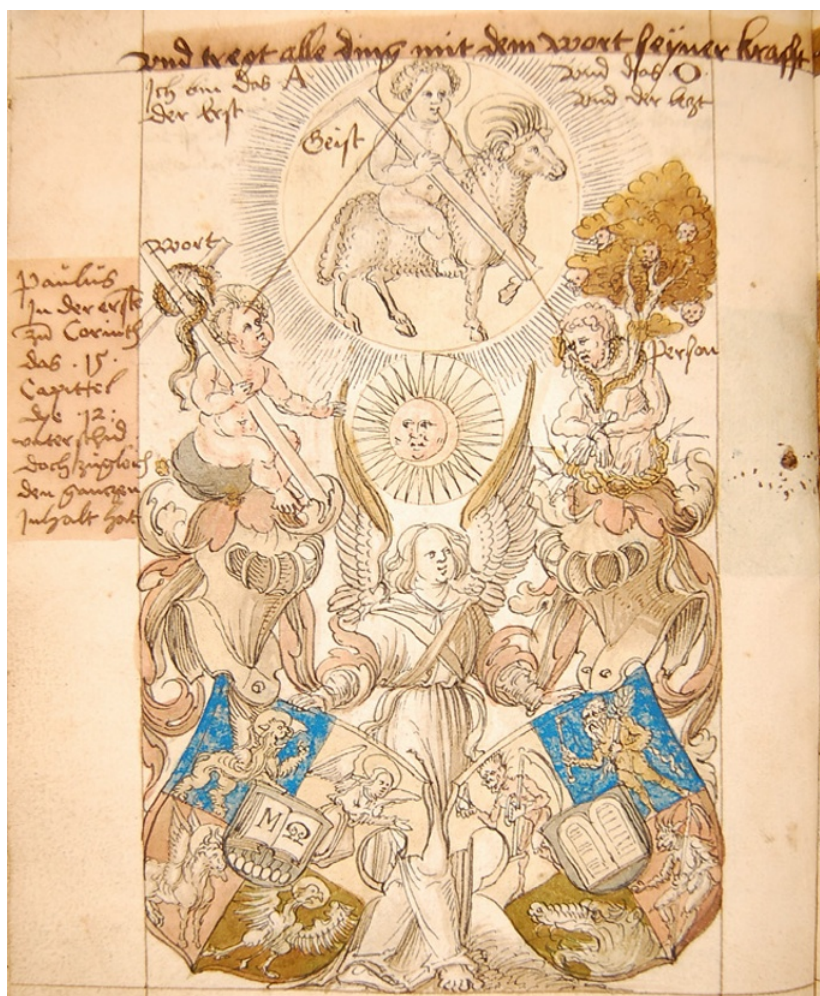 Vnd tregt alle ding mit dem wort seyner krafft
Ich bin das A
der Erst
vnd das O
vnd der letzt
Geist
Wort
Person
Paulus
In der erst
zu Corinth
das . 15 .
Capittel
die 12 :
vnterschid
doch zugleich
den ganczen
Inhalt hat
M Ω